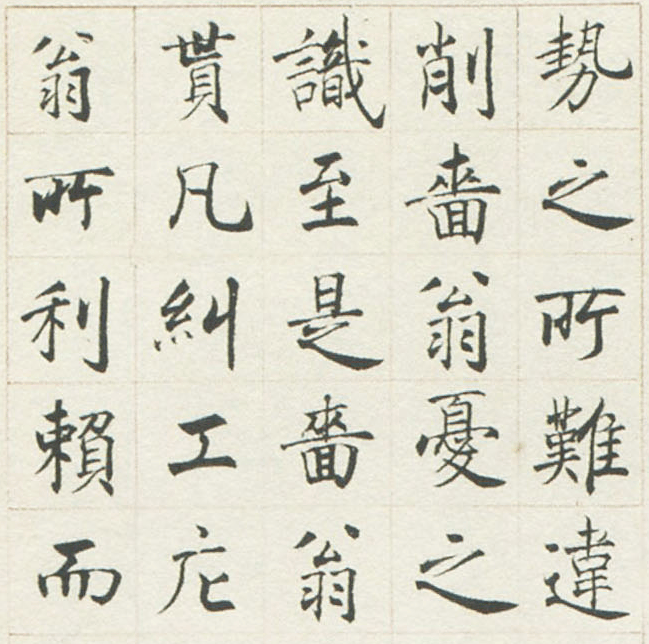 勢之所難違
削嗇翁憂之
識至是嗇翁
貰凡糾工庀
翁所利賴而